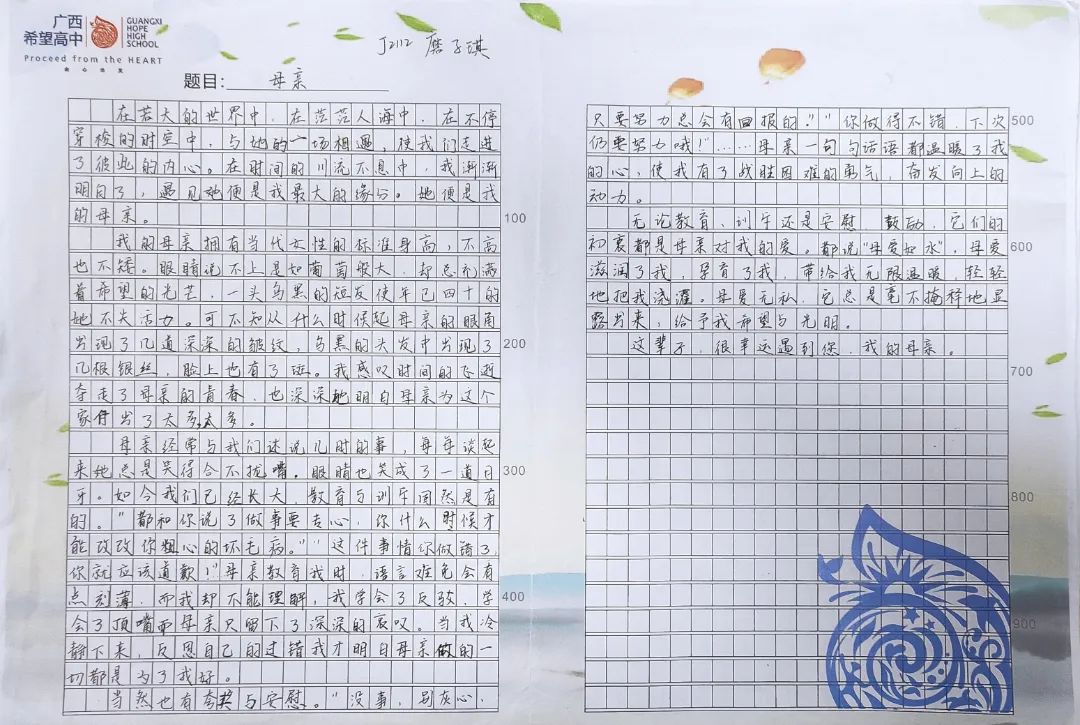 广西
希望高中
GUANGXI
HOPE
HIGH
SCHOOL
Proceed from the HEART
由心出发
J2112 磨子琪
题目: 母亲
在若大的世界中，在茫茫人海中，在不停
穿梭的时空中，与她的一场相遇，使我们走进
了彼此的内心。在时间的川流不息中，我渐渐
明白了，遇见她便是我最大的缘分。她便是我
的母亲。
100
我的母亲拥有当代女性的标准身高，不高
也不矮。眼睛说不上是如葡萄般大，却总充满
着希望的光芒，一头乌黑的短发使年已四十的
她不失活力。可不知从什么时候起母亲的眼角
出现了几道深深的皱纹，乌黑的头发中出现了
200
几根银丝，脸上也有了斑。我感叹时间的飞逝
夺走了母亲的青春，也深深地明白母亲为这个
家付出了太多太多。
母亲经常与我们述说儿时的事，每每谈起
来她总是笑得合不拢嘴。眼睛也笑成了一道月
300
牙。如今我们已经长大，教育与训斥固然是有
的。“都和你说了做事要专心，你什么时候才
能改改你粗心的坏毛病。”“这件事情你做错了，
你就应该道歉！”母亲教育我时，语言难免会有
点刻薄，而我却不能理解，我学会了反驳，学
400
会了顶嘴而母亲只留下了深深的哀叹。当我冷
静下来，反思自己的过错我才明白母亲做的一
切都是为了我好。
当然也有夸奖与安慰。“没事，别灰心，
只要努力总会有回报的。”“你做得不错，下次
500
仍要努力哦！”……母亲一句句话语都温暖了我
的心，使我有了战胜困难的勇气，奋发向上的
动力。
无论教育、训斥还是安慰、鼓励，它们的
初衷都是母亲对我的爱。都说“母爱如水”，母爱
600
滋润了我，孕育了我，带给我无限温暖，轻轻
地把我浇灌。母爱无私，它总是毫不掩释地显
露出来，给予我希望与光明。
这辈子，很幸运遇到你，我的母亲。
700
800
900